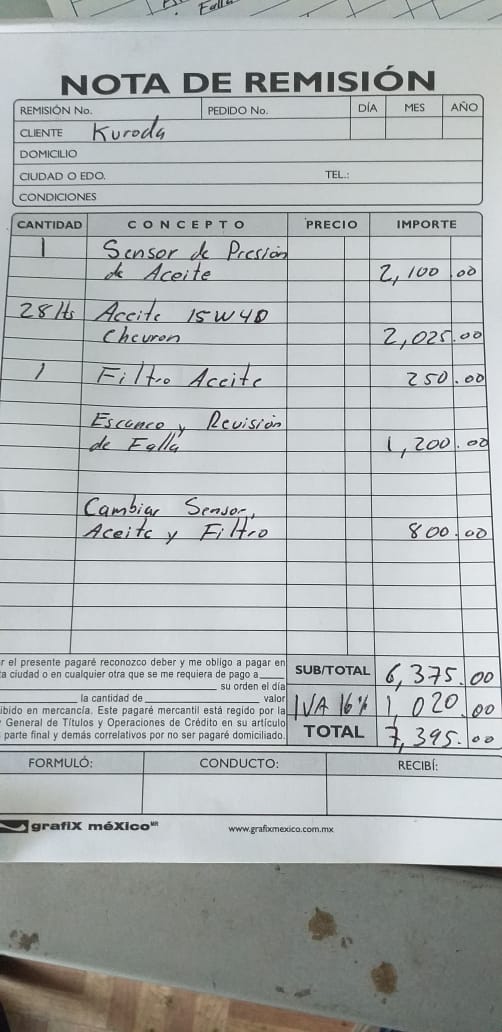 Falla
NOTA DE REMISIÓN
REMISIÓN No. PEDIDO No. DÍA MES AÑO
CLIENTE Kuroda
DOMICILIO
CIUDAD O EDO. TEL.:
CONDICIONES
CANTIDAD CONCEPTO PRECIO IMPORTE
1 Sensor de Presión
de Aceite 2,100.00
28 lts Aceite 15W40
Chevron 2,025.00
1 Filtro Aceite 250.00
Escaneo y Revisión
de Falla 1,200.00
Cambiar Sensor,
Aceite y Filtro 800.00
r el presente pagaré reconozco deber y me obligo a pagar en
ta ciudad o en cualquier otra que se me requiera de pago a SUB/TOTAL 6,375.00
su orden el día
la cantidad de valor
ibido en mercancía. Este pagaré mercantil está regido por la IVA 16% 1,020.00
General de Títulos y Operaciones de Crédito en su artículo
parte final y demás correlativos por no ser pagaré domiciliado. TOTAL 7,395.00
FORMULÓ: CONDUCTO: RECIBÍ:
grafiX méXico MR www.grafixmexico.com.mx